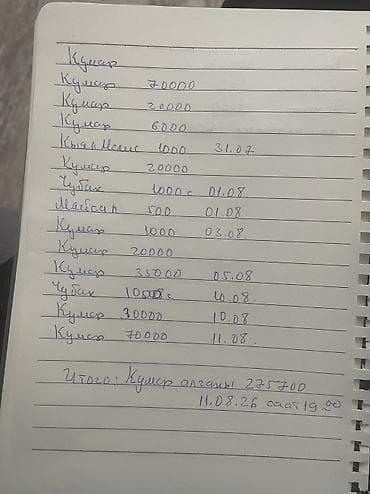 Кумар
Кумар 70000
Кумар 20000
Кумар 6000
Кыял 1000 31.07
Кумар 20000
Чубак 1000 с 01.08
500 01.08
Кумар 1000 03.08
Кумар 20000
Кумар 35000 05.08
Чубак с 10.08.
Кумар 30000 10.08
Кумар 70000 11.08.
Итого: Кумар алганы 275700
11.08.26 саат 19 00